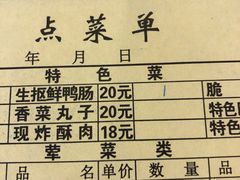 点菜单
年 月 日
特色菜
生抠鲜鸭肠 20元 1 脆
香菜丸子 20元 特色
现炸酥肉 18元 特色
荤菜类
品名 单价 数量 品